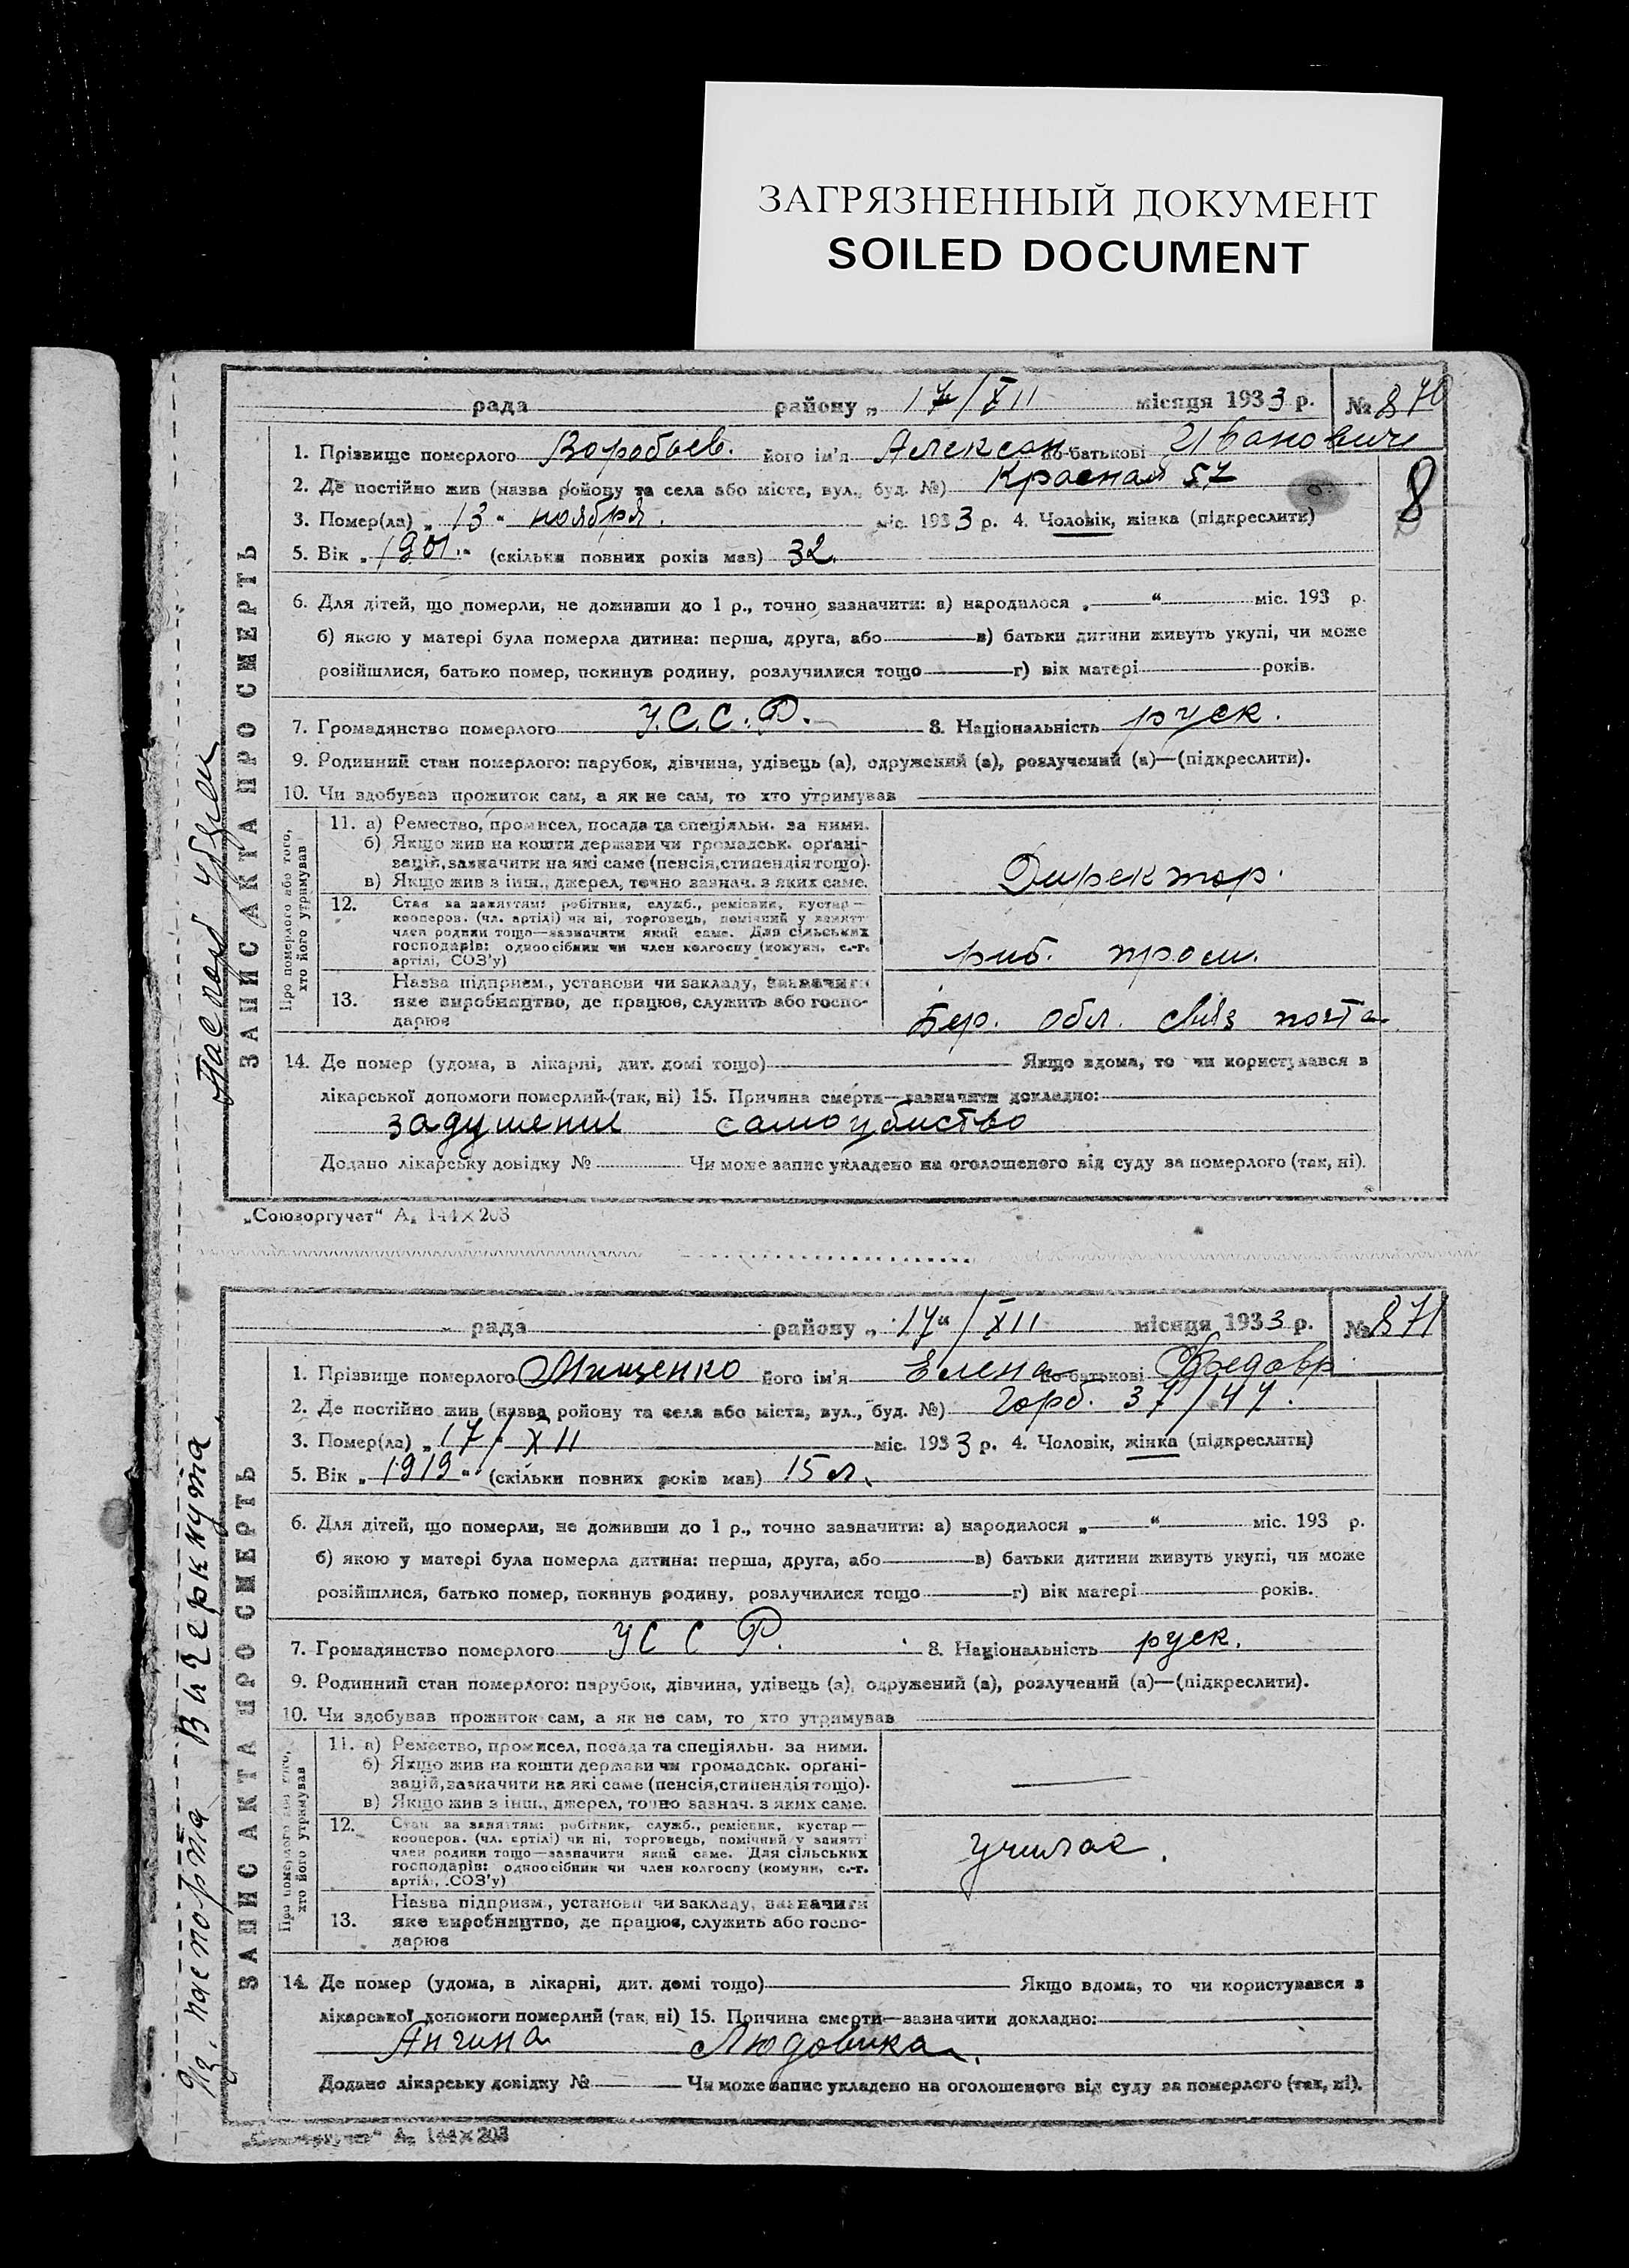 ЗАГРЯЗНЕННЫЙ ДОКУМЕНТ
SOILED DOCUMENT
рада району „ 17/XII місяця 1933 р. № 870
1. Прізвище померлого Воробьев. його ім'я Алексан. по батькові Иванович
8
2. Де постійно жив (назва району та села або міста, вул., буд. №) Красная 57
3. Помер(ла) „ 13 " ноября. міс. 1933 р. 4. Чоловік, жінка (підкреслити)
5. Вік „ 1901. " (скільки повних років мав) 32.
6. Для дітей, що померли, не доживши до 1 р., точно зазначити: а) народилося „ “ міс. 193 р.
б) якою у матері була померла дитина: перша, друга, або в) батьки дитини живуть укупі, чи може
розійшлися, батько помер, покинув родину, розлучилися тощо г) вік матері років.
7. Громадянство померлого У.С.С.Р. 8. Національність руск.
9. Родинний стан померлого: парубок, дівчина, удівець (а), одружений (а), розлучений (а)—(підкреслити).
10. Чи здобував прожиток сам, а як не сам, то хто утримував
Про померлого або того, хто його утримував
11. а) Ремество, промисел, посада та спеціяльн. за ними.
б) Якщо жив на кошти держави чи громадськ. орґані-
зацій, зазначити на які саме (пенсія, стипендія тощо).
в) Якщо жив з інш., джерел, точно зазнач. з яких саме.
Директор.
12. Стан за заняттям: робітник, служб., ремісник, кустар—
кооперов. (чл. артілі) чи ні, торговець, помічний у занятті
член родини тощо—зазначити який саме. Для сільських
господарів: одноосібник чи член колгоспу (комуни, с.-г.
артілі, СОЗ'у)
риб.
13. Назва підприєм., установи чи закладу, зазначити
яке виробництво, де працює, служить або госпо-
дарює
Бер. обл. связ почта.
14. Де помер (удома, в лікарні, дит. домі тощо) Якщо вдома, то чи користувався з
лікарської допомоги померлий (так, ні) 15. Причина смерти—зазначити докладно:
задушени самоубиство
Додано лікарську довідку № Чи може запис укладено на оголошеного від суду за померлого (так, ні).
ЗАПИС АКТА ПРО СМЕРТЬ
„Союзоргучет“ А₅ 144×203
рада району „ 17 " /XII місяця 1933 р. № 871
1. Прізвище померлого Мищенко його ім'я Елена по батькові Федовр.
2. Де постійно жив (назва району та села або міста, вул., буд. №) Горб. 37/47.
3. Помер(ла) „ 17/XII міс. 1933 р. 4. Чоловік, жінка (підкреслити)
5. Вік „ 1919 " (скільки повних років мав) 15 л.
6. Для дітей, що померли, не доживши до 1 р., точно зазначити: а) народилося „ “ міс. 193 р.
б) якою у матері була померла дитина: перша, друга, або в) батьки дитини живуть укупі, чи може
розійшлися, батько помер, покинув родину, розлучилися тощо г) вік матері років.
7. Громадянство померлого УССР. 8. Національність руск.
9. Родинний стан померлого: парубок, дівчина, удівець (а), одружений (а), розлучений (а)—(підкреслити).
10. Чи здобував прожиток сам, а як не сам, то хто утримував
Про померлого або того, хто його утримував
11. а) Ремество, промисел, посада та спеціяльн. за ними.
б) Якщо жив на кошти держави чи громадськ. орґані-
зацій, зазначити на які саме (пенсія, стипендія тощо).
в) Якщо жив з інш., джерел, точно зазнач. з яких саме.
12. Стан за заняттям: робітник, служб., ремісник, кустар—
кооперов. (чл. артілі) чи ні, торговець, помічний у занятті
член родини тощо—зазначити який саме. Для сільських
господарів: одноосібник чи член колгоспу (комуни, с.-г.
артілі, СОЗ'у)
13. Назва підприєм., установи чи закладу, зазначити
яке виробництво, де працює, служить або госпо-
дарює
14. Де помер (удома, в лікарні, дит. домі тощо) Якщо вдома, то чи користувався з
лікарської допомоги померлий (так, ні) 15. Причина смерти—зазначити докладно:
Ангина Людовика.
Додано лікарську довідку № Чи може запис укладено на оголошеного від суду за померлого (так, ні).
ЗАПИС АКТА ПРО СМЕРТЬ
Из. паспорта Вичеркнута
„Союзоргучет“ А₅ 144×203